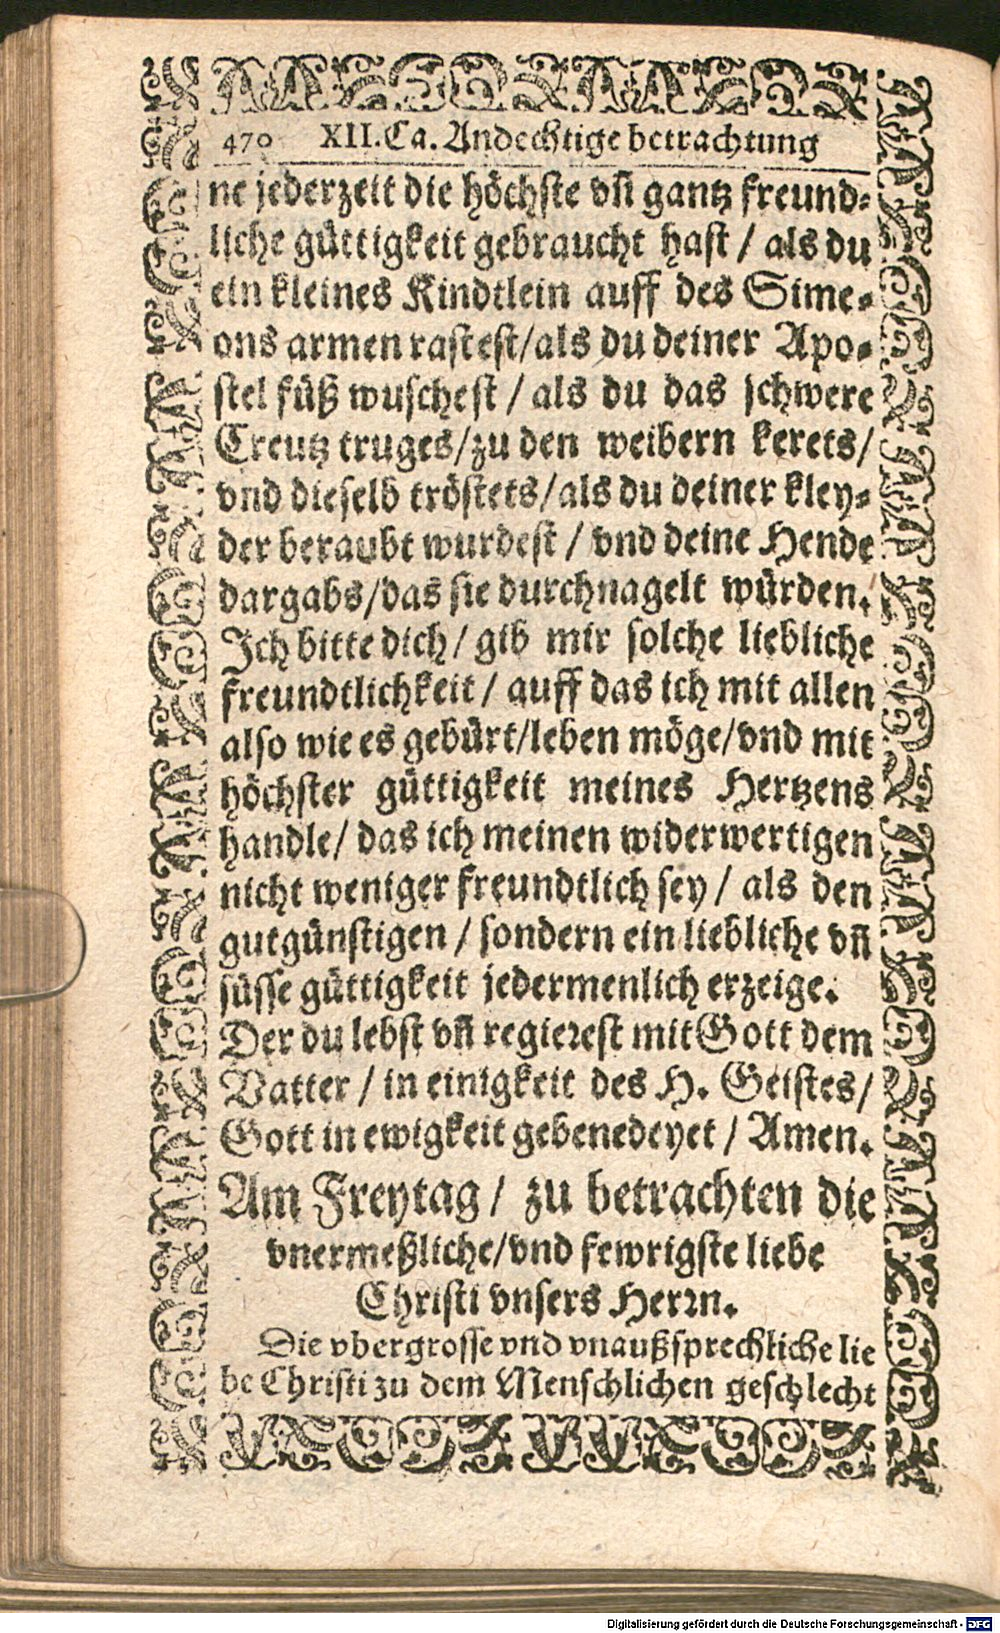 470 XII. Ca. Andechtige betrachtung
ne jederzeit die höchste vñ gantz freund⸗
liche güttigkeit gebraucht hast / als du
ein kleines Kindtlein auff des Sime⸗
ons armen rastest/als du deiner Apo⸗
stel füß wuschest / als du das schwere
Creutz truges/zu den weibern kerets/
vnd dieselb tröstets/als du deiner kley⸗
der beraubt wurdest / vnd deine Hende
dargabs/das sie durchnagelt würden.
Ich bitte dich/ gib mir solche liebliche
freundtlichkeit / auff das ich mit allen
also wie es gebürt/leben möge/vnd mit
höchster güttigkeit meines Hertzens
handle/ das ich meinen widerwertigen
nicht weniger freundtlich sey / als den
gutgünstigen / sondern ein liebliche vñ
süsse güttigkeit jedermenlich erzeige.
Der du lebst vñ regierest mit Gott dem
Vatter / in einigkeit des H. Geistes/
Gott in ewigkeit gebenedeyet / Amen.
Am Freytag / zu betrachten die
vnermeßliche/vnd fewrigste liebe
Christi vnsers Herrn.
Die vbergrosse vnd vnaußsprechliche lie
be Christi zu dem Menschlichen geschlecht
Digitalisierung gefördert durch die Deutsche Forschungsgemeinschaft - DFG